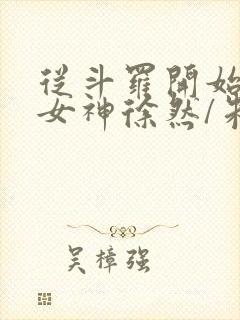 從斗羅開始
女神徐然/
吴樟强